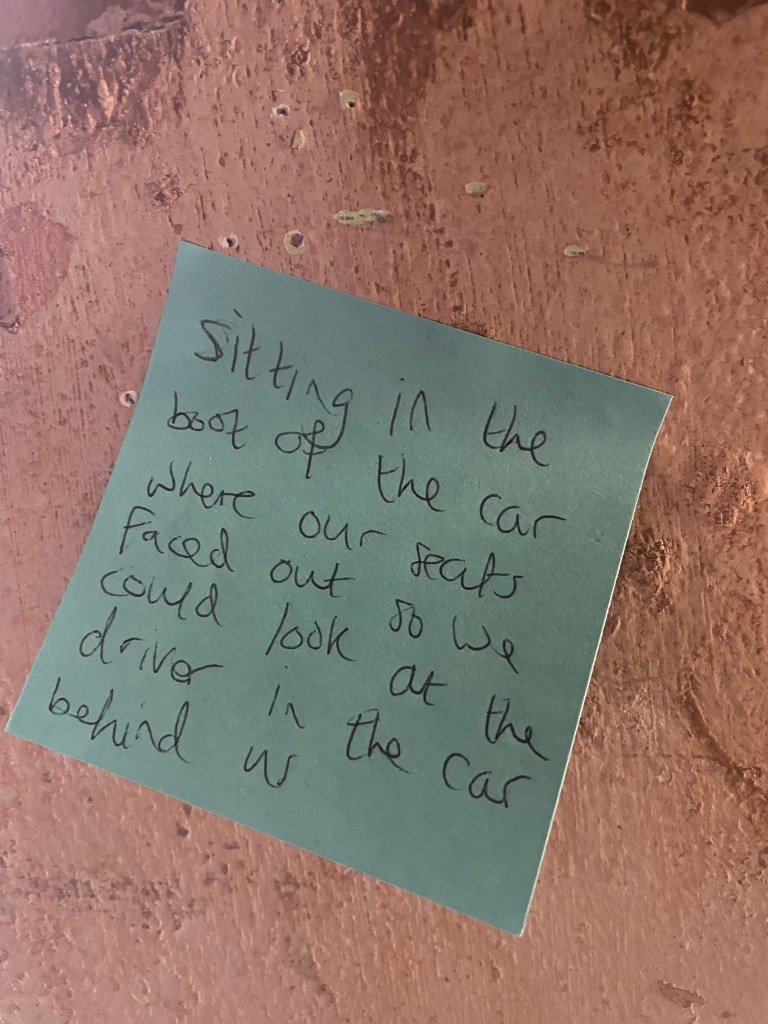 Sitting in the
boot of the car
where our seats
faced out so we
could look at the
driver in the car
behind us